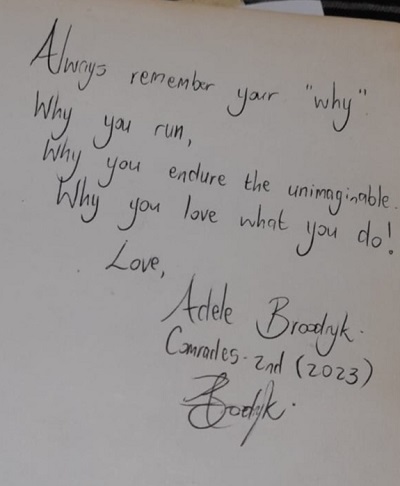 Always remember your "why".
Why you run,
Why you endure the unimaginable.
Why you love what you do!
Love,
Adele Broodryk.
Comrades - 2nd (2023)
Broodryk.